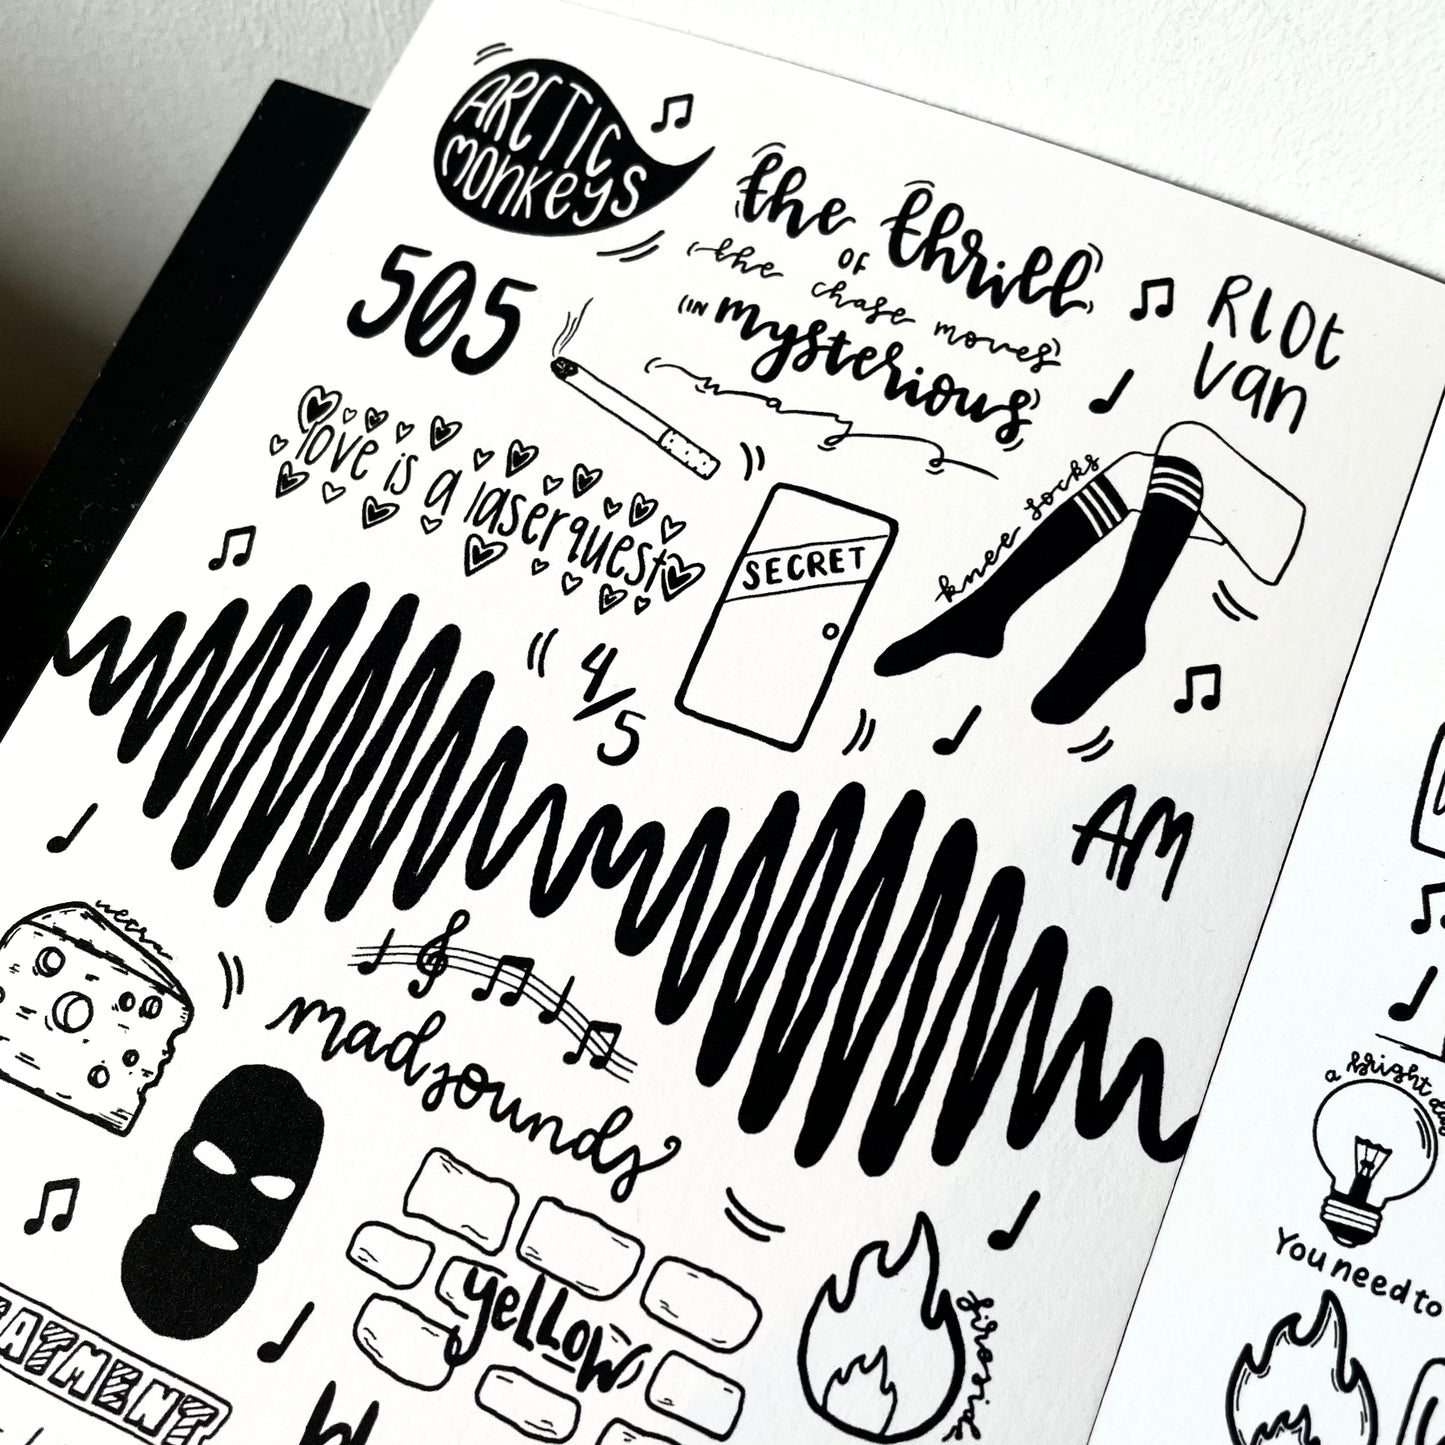 ARCTIC
MONKEYS
the thrill
OF
the chase moves
IN mysterious
way
505
Riot
Van
love is a laserquest
knee socks
SECRET
4/5
AM
mad sounds
yellow
fireside
a bright
You need to